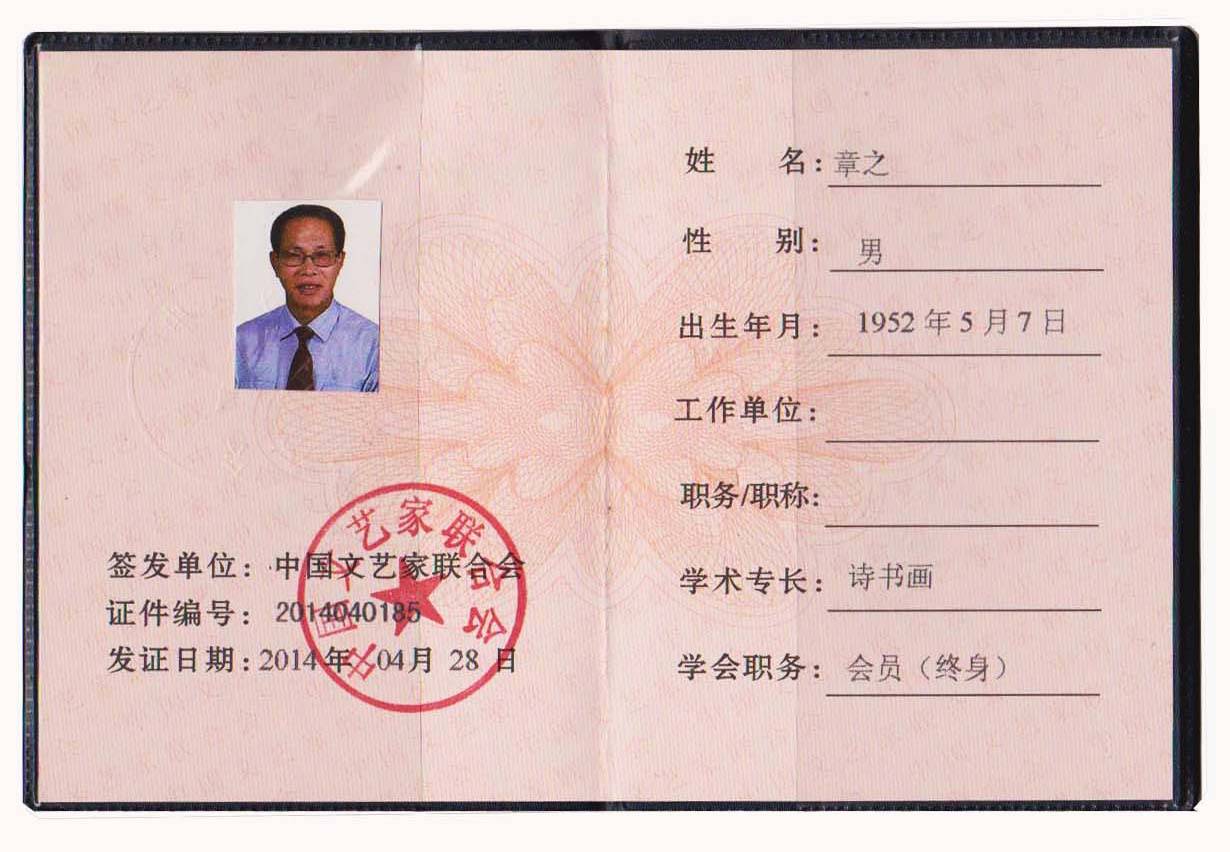 签发单位：中国文艺家联合会
证件编号：2014040185
发证日期：2014年 04月 28 日
中国文艺家联合会
姓 名：章之
性 别：男
出生年月：1952年5月7日
工作单位：
职务/职称：
学术专长：诗书画
学会职务：会员（终身）